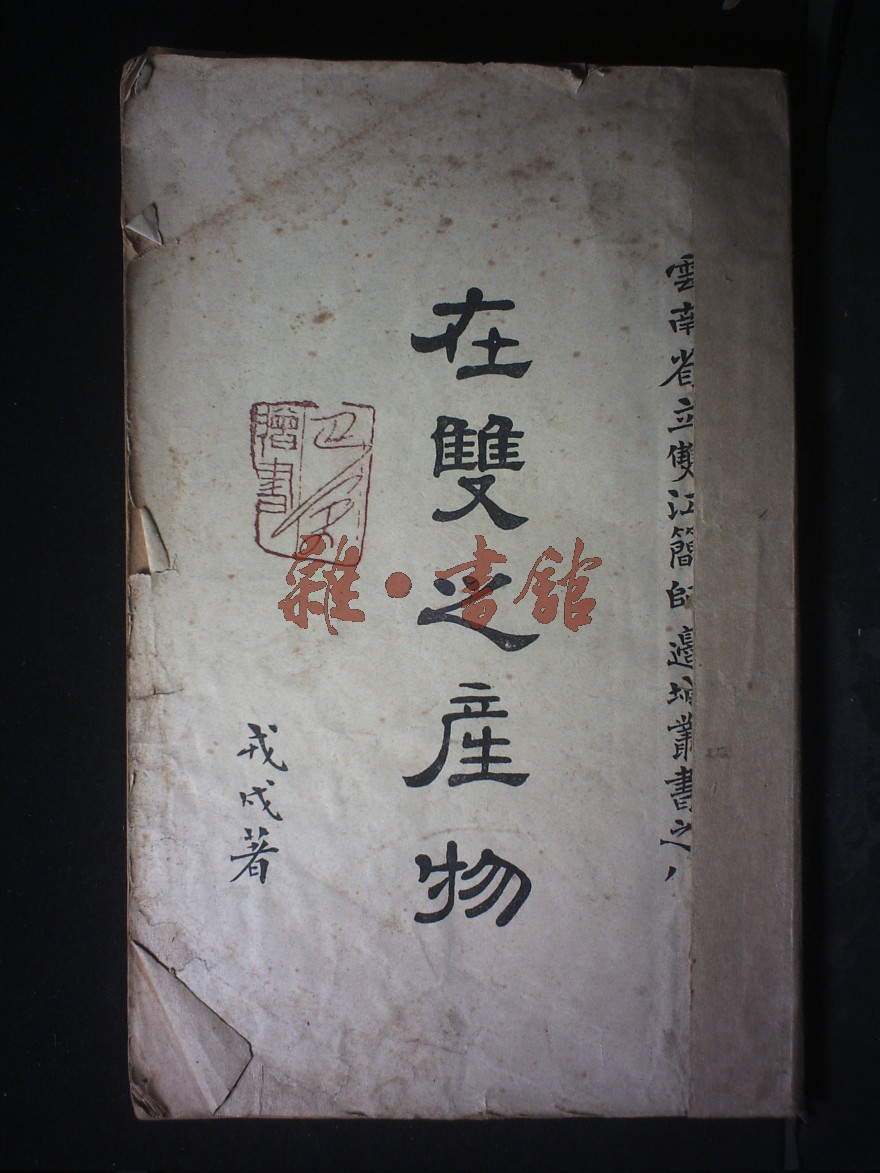 雲南省立雙江簡師邊城叢書之八
在雙之產物
戎戍著
贈書
雜·書館